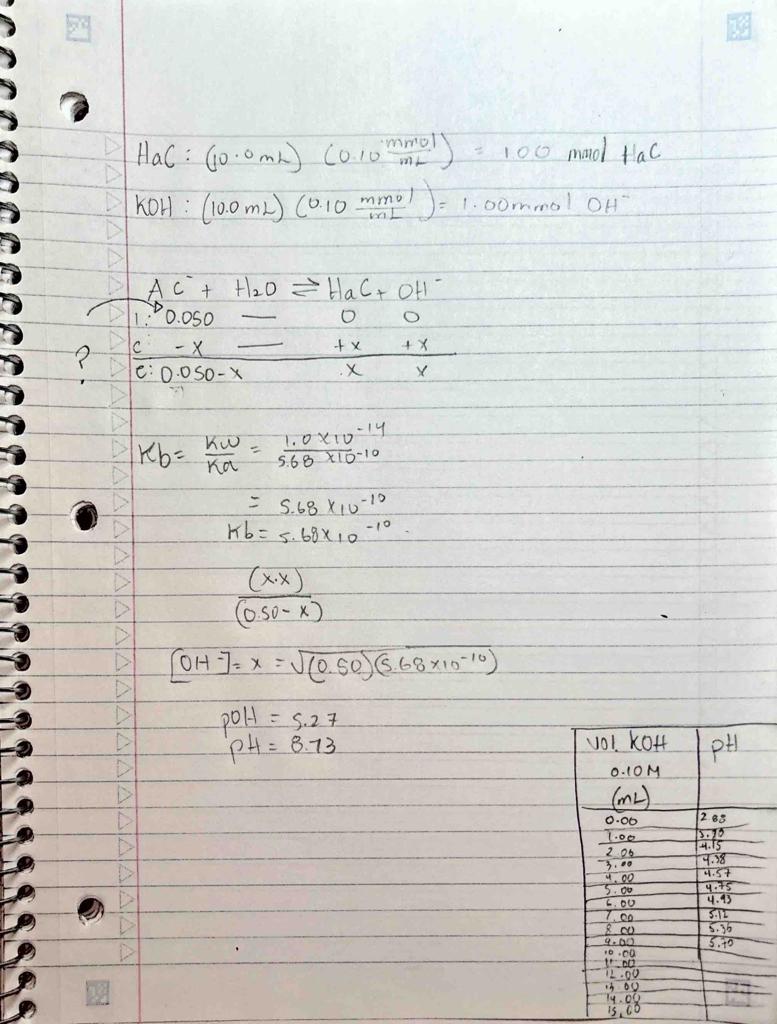 HaC : (10.0 mL) (0.10 mmol/mL) = 1.00 mmol HaC
KOH : (10.0 mL) (0.10 mmol/mL) = 1.00 mmol OH⁻
AC⁻ + H₂O ⇌ HaC + OH⁻
I: 0.050 — 0 0
C: -x — +x +x
?
E: 0.050-x x x
Kb = Kw/Ka = 1.0 x 10⁻¹⁴/5.68 x 10⁻¹⁰
= 5.68 x 10⁻¹⁰
Kb = 5.68 x 10⁻¹⁰
(x.x)/(0.50-x)
[OH⁻] = x = √(0.50)(5.68 x 10⁻¹⁰)
pOH = 5.27
pH = 8.73
Vol. KOH pH
0.10 M
(mL)
0.00 2.88
1.00
2.00 4.15
3.00 4.38
4.00 4.57
5.00 4.75
6.00 4.93
7.00 5.12
8.00 5.36
9.00 5.70
10.00
11.00
12.00
13.00
14.00
15.00